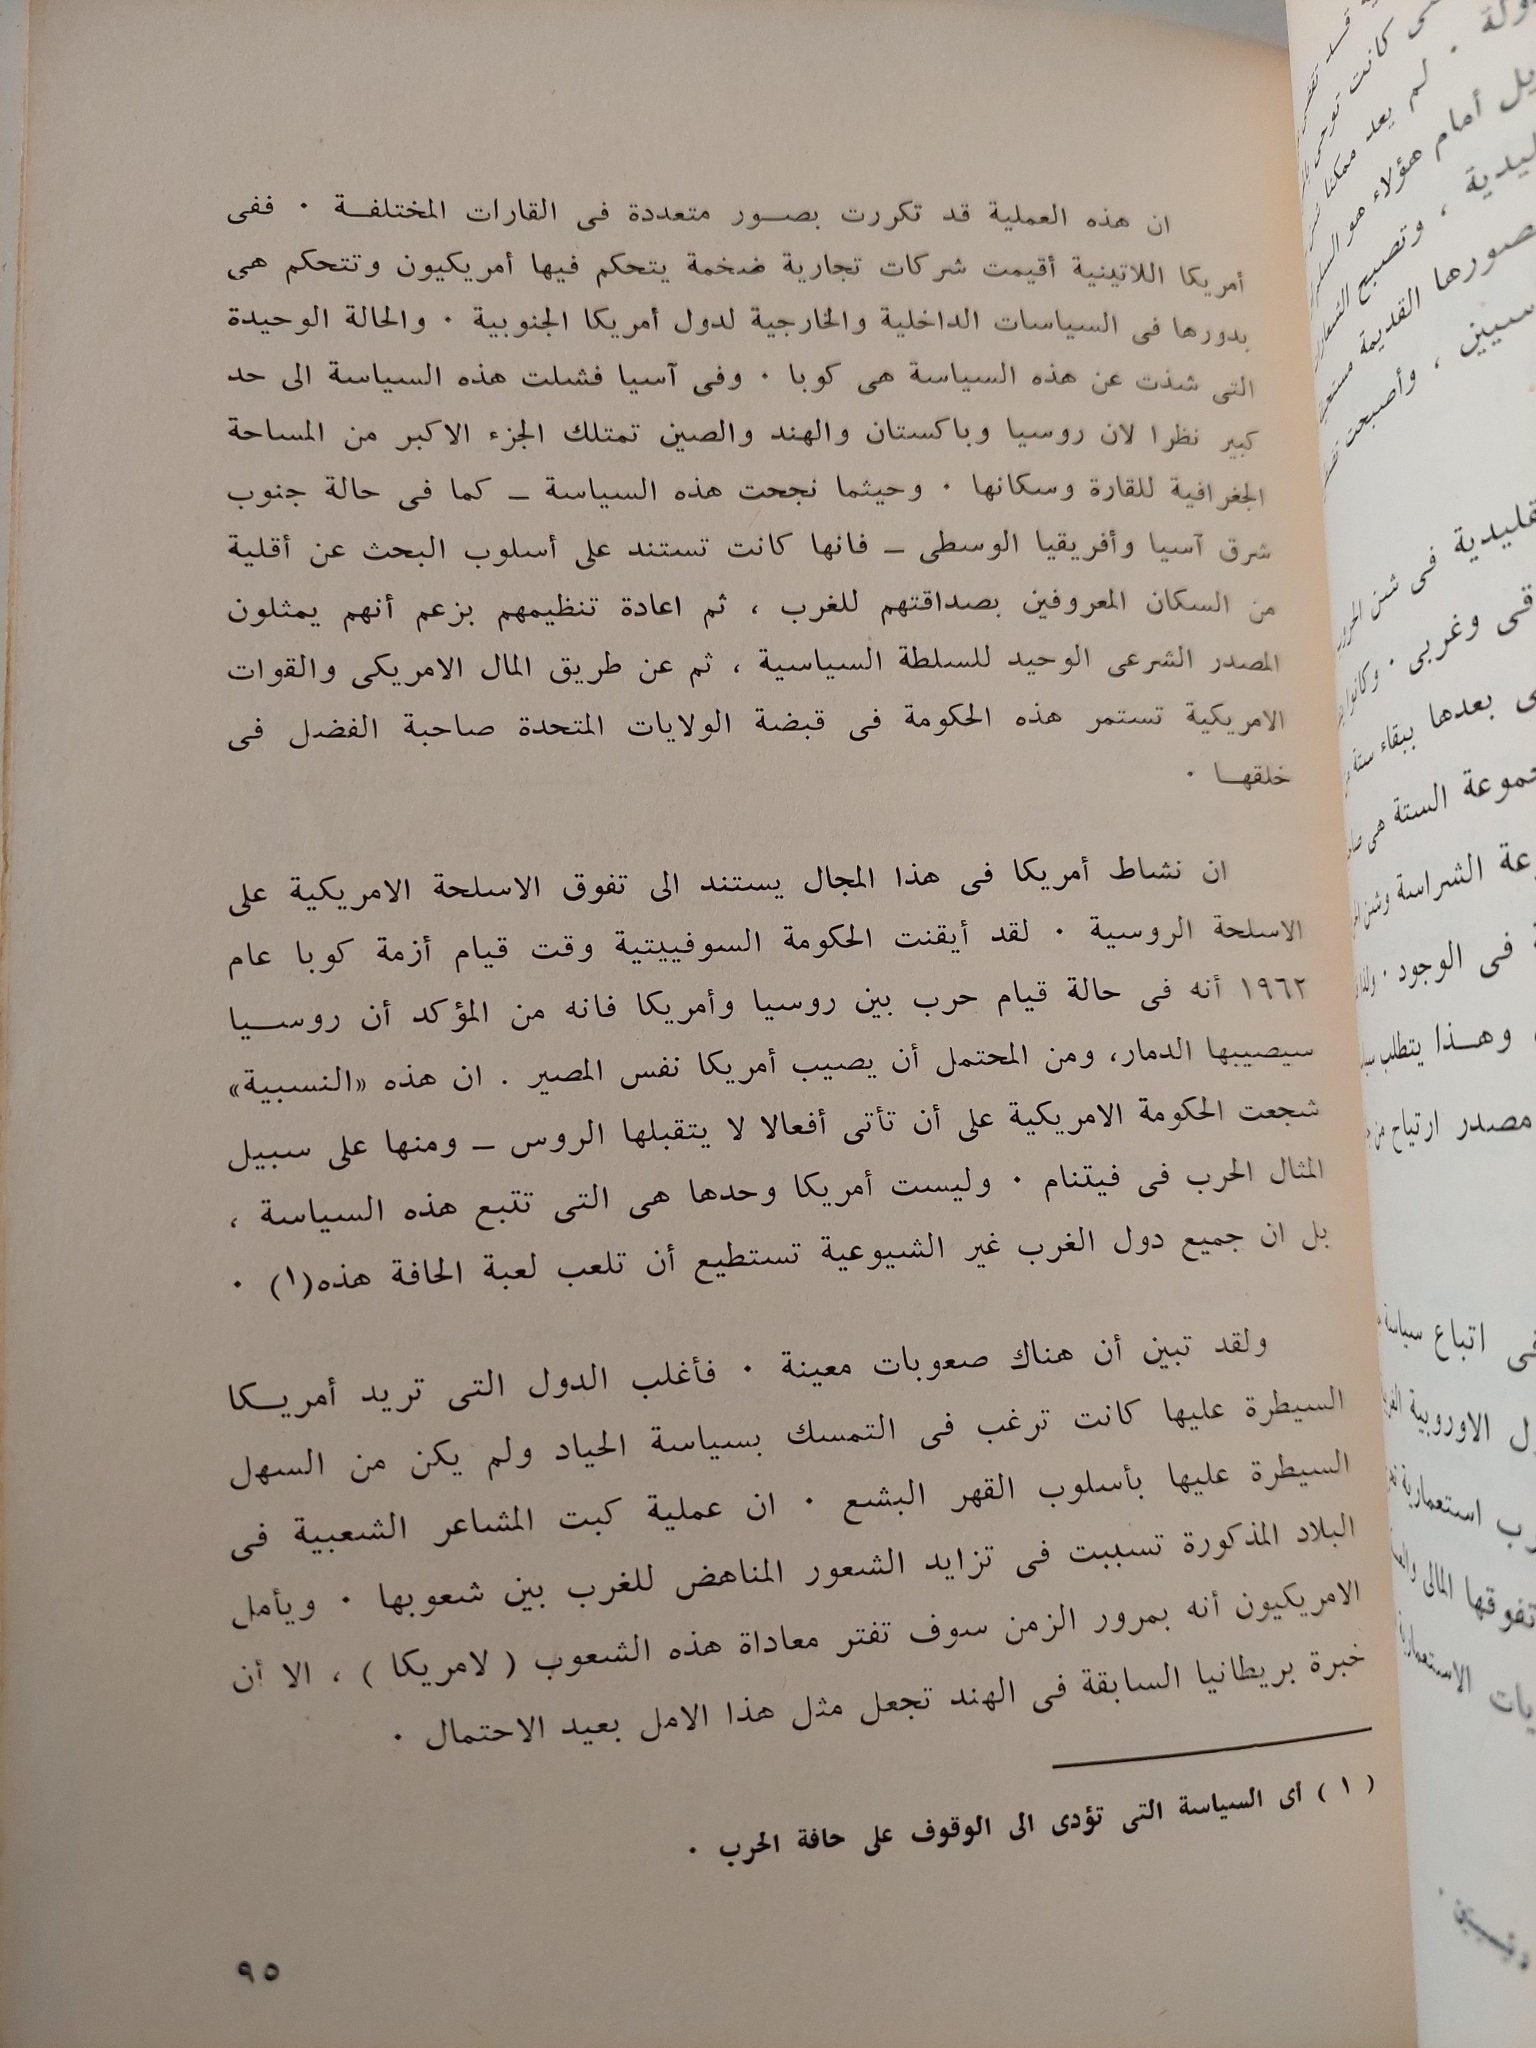 ان هذه العملية قد تكررت بصــور متعددة فى القارات المختلفــة ٠ ففى
أمريكا اللاتينية أقيمت شركات تجارية ضخمة يتحكم فيها أمريكيون وتتحكم هى
بدورها فى السياسات الداخلية والخارجية لدول أمريكا الجنوبية ٠ والحالة الوحيدة
التى شذت عن هذه السياسة هى كوبا ٠ وفى آسيا فشلت هذه السياسة الى حد
كبير نظرا لان روسيا وباكستان والهند والصين تمتلك الجزء الاكبر من المساحة
الجغرافية للقارة وسكانها ٠ وحيثما نجحت هذه السياسة ــ كما فى حالة جنوب
شرق آسيا وأفريقيا الوسطى ــ فانها كانت تستند على أسلوب البحث عن أقلية
من السكان المعروفين بصداقتهم للغرب ، ثم اعادة تنظيمهم بزعم أنهم يمثلون
المصدر الشرعى الوحيد للسلطة السياسية ، ثم عن طريق المال الامريكى والقوات
الامريكية تستمر هذه الحكومة فى قبضة الولايات المتحدة صاحبة الفضل فى
خلقهــا ٠
ان نشاط أمريكا فى هذا المجال يستند الى تفوق الاسلحة الامريكية على
الاسلحة الروسية ٠ لقد أيقنت الحكومة السوفييتية وقت قيام أزمة كوبا عام
١٩٦٢ أنه فى حالة قيام حرب بين روسيا وأمريكا فانه من المؤكد أن روســيا
سيصيبها الدمار، ومن المحتمل أن يصيب أمريكا نفس المصير . ان هذه «النسبية»
شجعت الحكومة الامريكية على أن تأتى أفعالا لا يتقبلها الروس ــ ومنها على سبيل
المثال الحرب فى فيتنام ٠ وليست أمريكا وحدها هى التى تتبع هذه السياسة ،
بل ان جميع دول الغرب غير الشيوعية تستطيع أن تلعب لعبة الحافة هذه(١) ٠
ولقد تبين أن هناك صعوبات معينة ٠ فأغلب الدول التى تريد أمريــكا
السيطرة عليها كانت ترغب فى التمسك بسياسة الحياد ولم يكن من السهل
السيطرة عليها بأسلوب القهر البشع ٠ ان عملية كبت المشاعر الشعبية فى
البلاد المذكورة تسببت فى تزايد الشعور المناهض للغرب بين شعوبها ٠ ويأمل
الامريكيون أنه بمرور الزمن سوف تفتر معاداة هذه الشعوب ( لامريكا ) ، الا أن
خبرة بريطانيا السابقة فى الهند تجعل مثل هذا الامل بعيد الاحتمال ٠
( ١ ) أى السياسة التى تؤدى الى الوقوف على حافة الحرب ٠
٩٥
كانت توحى
لم يعد ممكنا
أمام هؤلاء هو
، وتصبح
القديمة
، وأصبحت
فى شن
وغربى ٠ وكانوا
بعدها ببقاء ستة
الستة هى
الشراسة وشن
فى الوجود ٠
وهــذا يتطلب
مصدر ارتياح من
اتباع سياسة
الاوروبية
استعمارية
تفوقها المالى